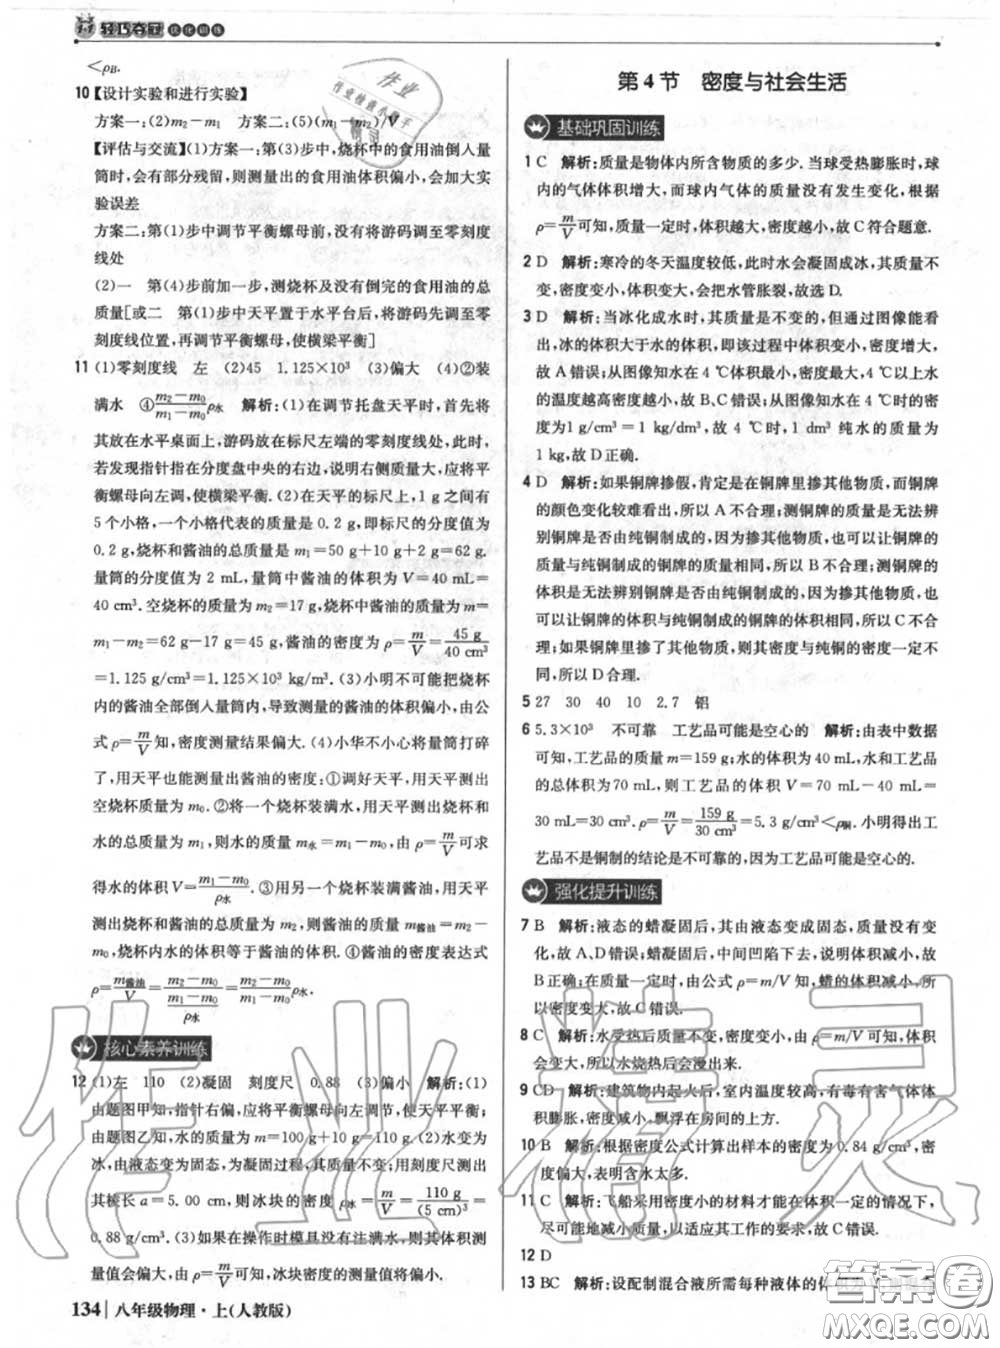 轻巧夺冠 优化训练
<ρB.
10【设计实验和进行实验】
方案一:(2)m₂－m₁ 方案二:(5)(m₁－m₂)/V
【评估与交流】(1)方案一:第(3)步中,烧杯中的食用油倒人量
筒时,会有部分残留,则测量出的食用油体积偏小,会加大实
验误差
方案二:(1)第(1)步中调节平衡螺母前,没有将游码调至零刻度
线处
(2)一 第(4)步前加一步,测烧杯及没有倒完的食用油的总
质量[或二 第(1)步中天平置于水平台后,将游码先调至零
刻度线位置,再调节平衡螺母,使横梁平衡]
11 (1)零刻度线 左 (2)45 1.125×10³ (3)偏大 (4)②装
满水 ④(m₂－m₀)/(m₁－m₀)ρ水 解析:(1)在调节托盘天平时,首先将
其放在水平桌面上,游码放在标尺左端的零刻度线处,此时,
若发现指针指在分度盘中央的右边,说明右侧质量大,应将平
衡螺母向左调,使横梁平衡.(2)天平的标尺上,1 g之间有
5个小格,一个小格代表的质量是0.2 g,即标尺的分度值为
0.2 g,烧杯和酱油的总质量是m₁=50 g+10 g+2 g=62 g.
量筒的分度值为2 mL,量筒中酱油的体积为V=40 mL=
40 cm³.空烧杯的质量为m₂=17 g,量筒中酱油的质量 m=
m₁－m₂=62 g-17 g=45 g,酱油的密度为ρ=m/V=45 g/40 cm³
=1.125 g/cm³=1.125×10³ kg/m³.(3)小明不可能把烧杯内
酱油全部倒人量筒内,导致测量的酱油体积偏小,由公
式ρ=m/V知,密度测量结果偏大.(4)小华不小心将量筒打碎
了,用天平也能测量出酱油的密度:①调好天平,用天平测出
空烧杯质量为m₀.②将一个烧杯装满水,用天平测出烧杯和
水的总质量为m₁,则水的质量 m水=m₁－m₀,由ρ=m/V可求
得水的体积V=(m₁－m₀)/ρ水.③用烧杯装满酱油,用天平
测出烧杯和酱油的总质量为m₂,则酱油的质量m酱油=m₂－
m₀,烧杯内水的体积等于酱油的体积.④酱油的密度表达式
ρ=m酱油/V=(m₂－m₀)/((m₁－m₀)/ρ水)=(m₂－m₀)/(m₁－m₀)ρ水.
核心素养训练
12 (1)左 110 (2)凝固 刻度尺 0.88 (3)偏小 解析:(1)
由题图甲知,指针右偏,应将平衡螺母向左调,使天平平衡;
由题图乙知,水的质量m=100 g+10 g=110 g.(2)水结成
冰,由液态变为固态,属于凝固现象;由题图丙用刻度尺测出
其棱长a=5.00 cm,则冰块的密度ρ冰=m/V=110 g/(5 cm)³=
0.88 g/cm³.(3)如果在操作时模具没有注满水,则其质量测量
值会偏大,由ρ=m/V知,冰块密度的测量值应偏小.
134 八年级物理·上(人教版)
第4节 密度与社会生活
基础巩固训练
1 C 解析:质量是物体内所含物质的多少.当球受热膨胀时,球
内的气体体积增大,而球内气体的质量没有发生变化,根据
ρ=m/V可知,质量一定时,体积越大,密度越小,故C符合题意.
2 D 解析:寒冷的冬天温度较低,此时水会凝固成冰,其质量不
变,密度变小,体积变大,会把水管胀裂,故选D.
3 D 解析:当冰化成水时,其质量是不变的,但通过图像能看
出,冰的体积大于水的体积,即该过程中体积变小,密度增大,
故A错误;从图像知水在4 ℃时体积最小,密度最大,4 ℃以上
的温度越高密度越小,故B、C错误;从图像知水在4 ℃时的密
度为1 g/cm³=1 kg/dm³,故4 ℃时,1 dm³水的质量为
1 kg,故D正确.
4 D 解析:如果铜牌掺假,肯定是在铜牌里掺其他物质,而铜牌
的颜色变化较难看出来,所以A不合理;测铜牌的质量是无法辨
别铜牌是否由纯铜制成的,因为掺其他物质,也可以让铜牌质
量与纯铜制成的铜牌的质量相同,所以B不合理;测铜牌的体
积是无法辨别铜牌是否由纯铜制成的,因为掺其他物质,也
可以让铜牌的体积与纯铜制成的铜牌的体积相同,所以C不合
理;如果铜牌里掺了其他物质,则铜牌的密度与纯铜的密度不
同,所以D合理.
5 27 30 40 10 2.7 铝
6 5.3×10³ 不可靠 工艺品可能是空心的 解析:由表中数据
可知,工艺品的质量m=159 g;水的体积为40 mL,水和工艺品
的总体积为70 mL,则工艺品的体积V=70 mL－40 mL=
30 mL=30 cm³.ρ=m/V=159 g/30 cm³=5.3 g/cm³<ρ铜.小明得出工
艺品不是铜制的结论是不可靠的,因为工艺品可能是空心的.
强化提升训练
7 B 解析:液态的蜡凝固后,其由液态变成固态,质量没有变
化,故A、D错误;蜡凝固后,中间凹陷下去,说明体积减小,故
B正确;在质量一定时,由公式ρ=m/V知,蜡的体积变小,所
以密度变大,故C错误.
8 C 解析:水受热后质量不变,密度变小,由ρ=m/V可知,体积
会变大,所以水烧热后会漫出来.
9 CD 解析:建筑物内起火后,室内温度较高,有毒有害气体体
积膨胀,密度减小,飘浮在房间的上方.
10 B 解析:根据密度公式计算出样本的密度为0.84 g/cm³,密
度偏大,表明含水太多.
11 C 解析:飞船采用密度小的材料才能在体积一定的情况下,
尽可能地减小质量,以适应其工作的要求,故C正确.
12 D
13 BC 解析:设配制混合液所需每种液体的体
作业精灵
答案卷